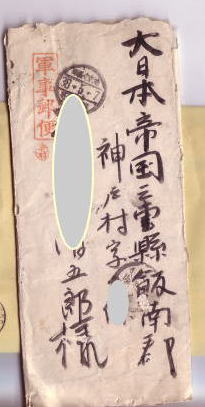 大日本帝国三重縣飯南郡
神戸村字
五郎様
軍事郵便